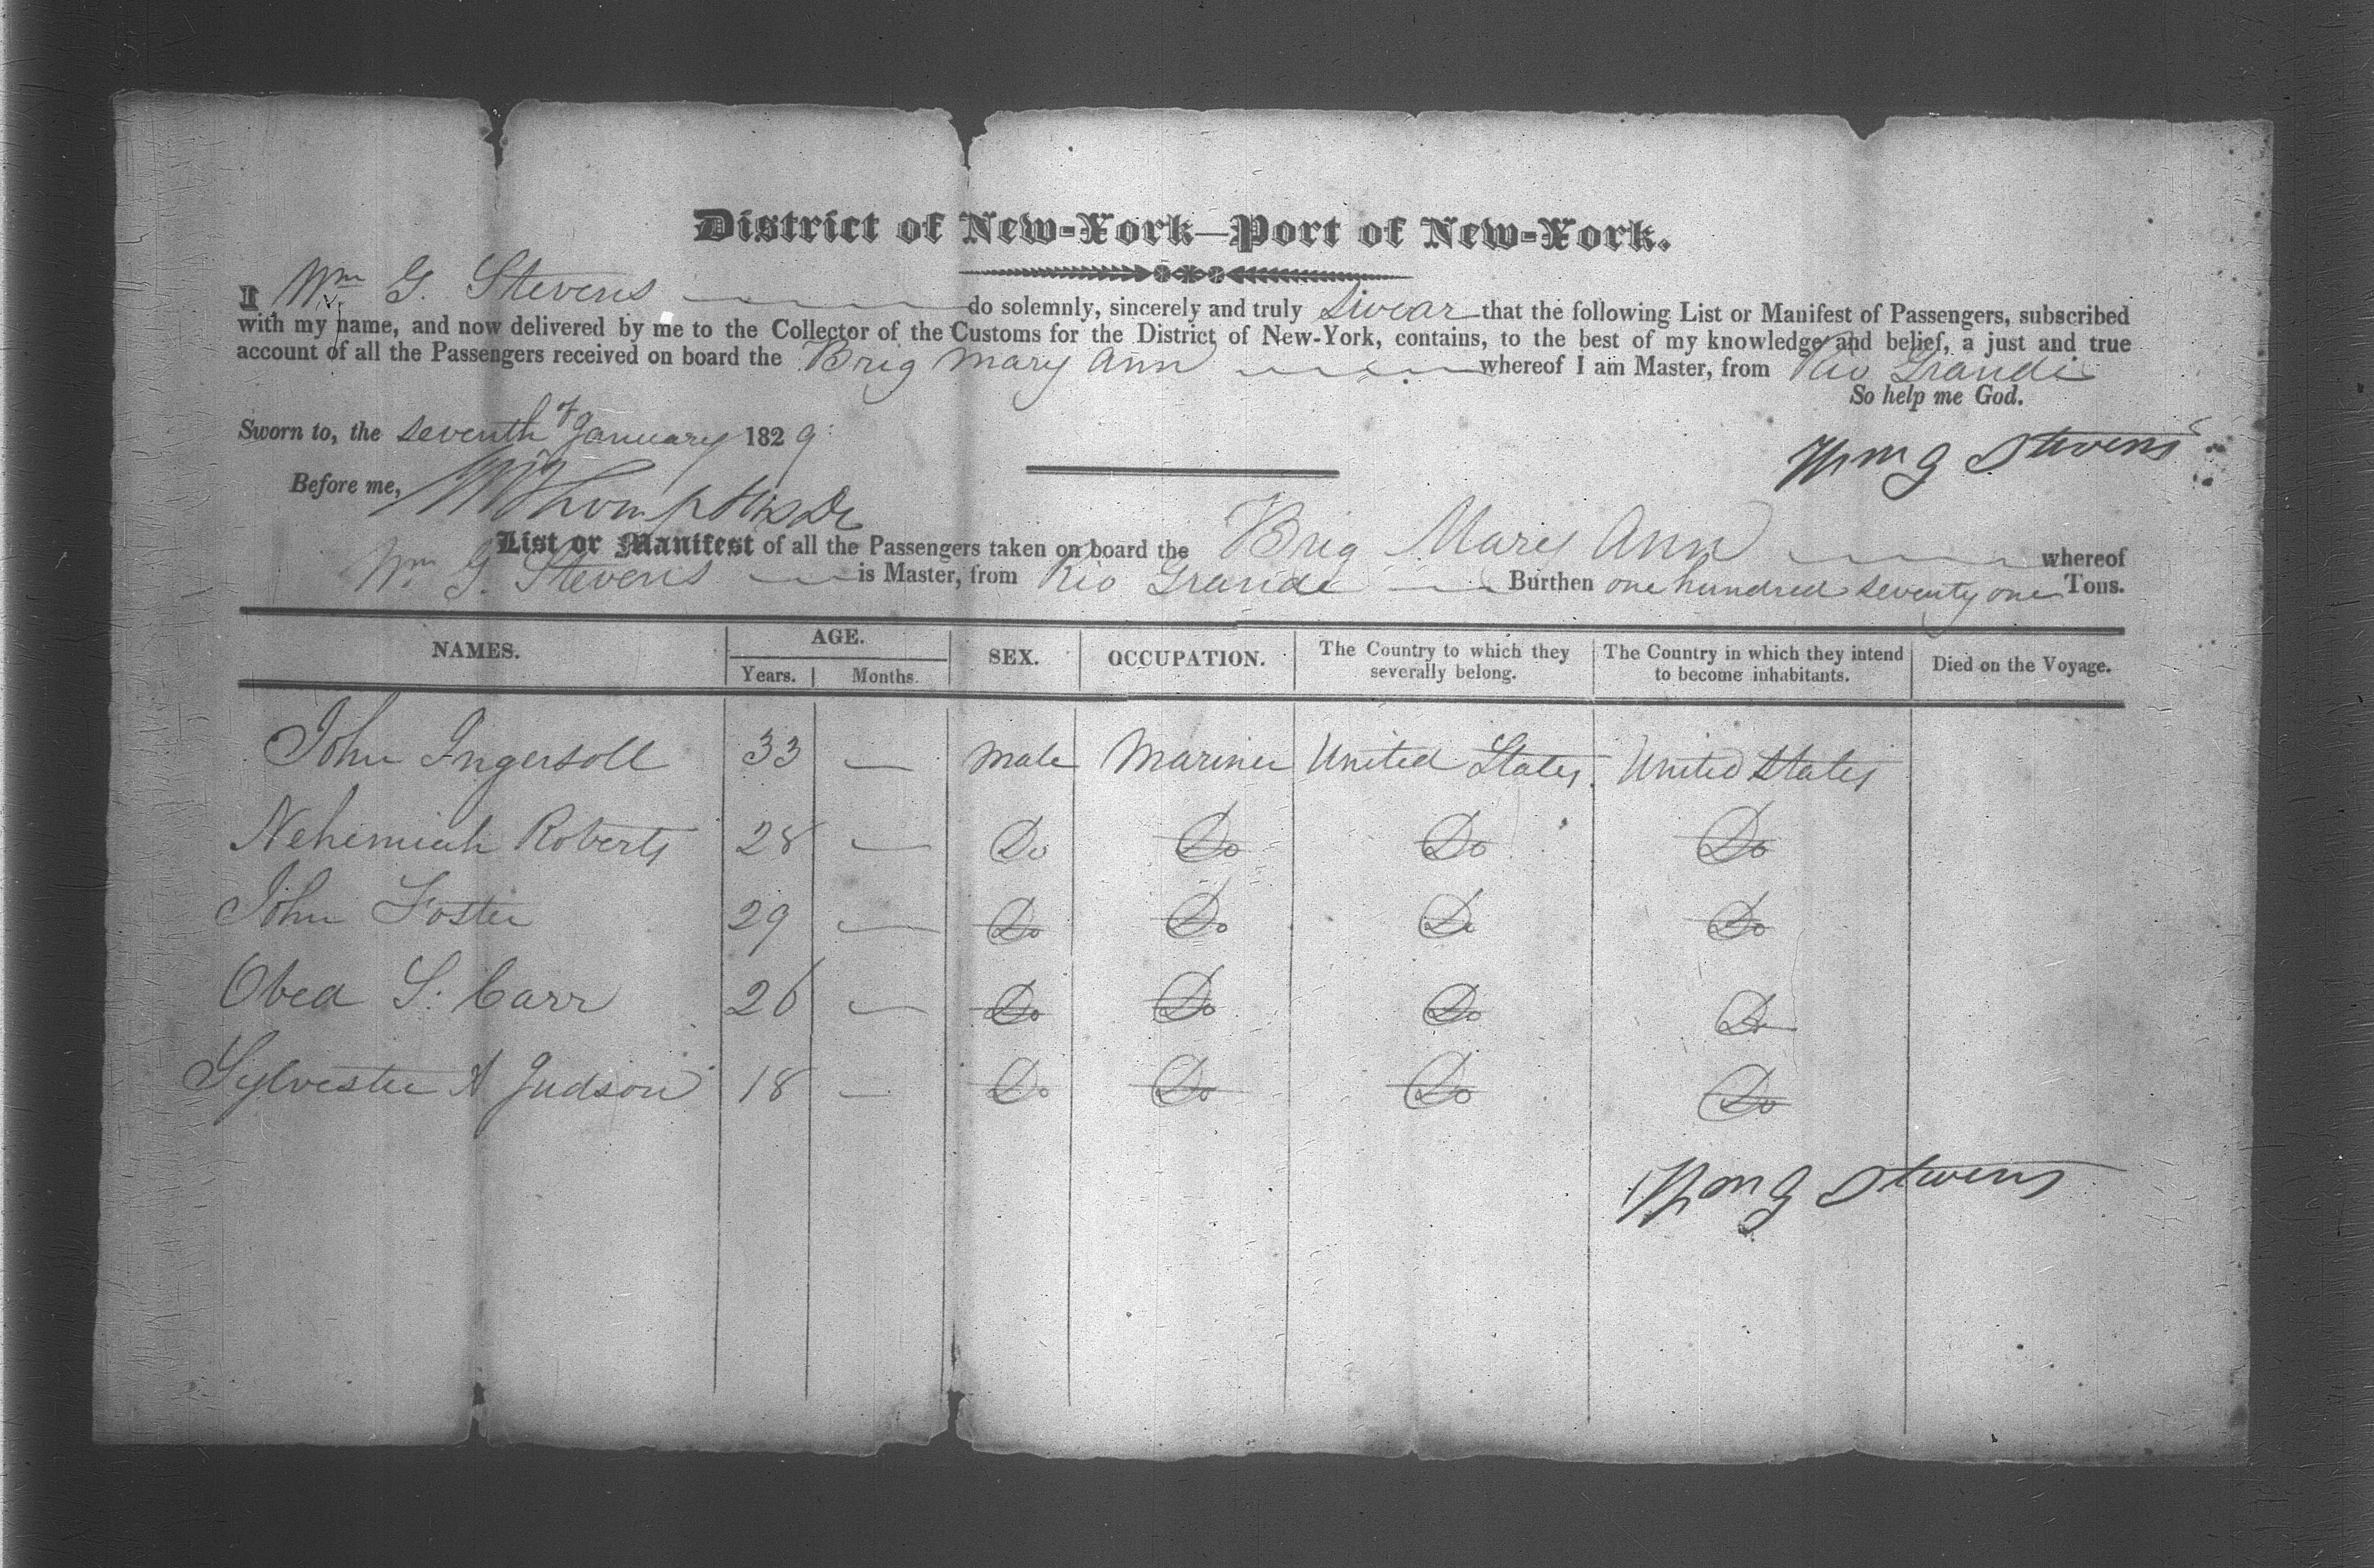 District of New-York—Port of New-York.
I Wm G. Stevens do solemnly, sincerely and truly swear that the following List or Manifest of Passengers, subscribed
with my name, and now delivered by me to the Collector of the Customs for the District of New-York, contains, to the best of my knowledge and belief, a just and true
account of all the Passengers received on board the Brig Mary Ann whereof I am Master, from Rio Grande
So help me God.
Sworn to, the seventh of January 1829
Wm G Stevens
Before me,
List or Manifest of all the Passengers taken on board the Brig Mary Ann whereof
Wm G. Stevens is Master, from Rio Grande Burthen one hundred seventy one Tons.
NAMES. AGE. Years. Months. SEX. OCCUPATION. The Country to which they severally belong. The Country in which they intend to become inhabitants. Died on the Voyage.
John Ingersoll 33 — Male Mariner United States United States
Nehemiah Roberts 28 — Do Do Do Do
John Foster 29 — Do Do Do Do
Obed S. Carr 26 — Do Do Do Do
Sylvester A Judson 18 — Do Do Do Do
Wm G Stevens